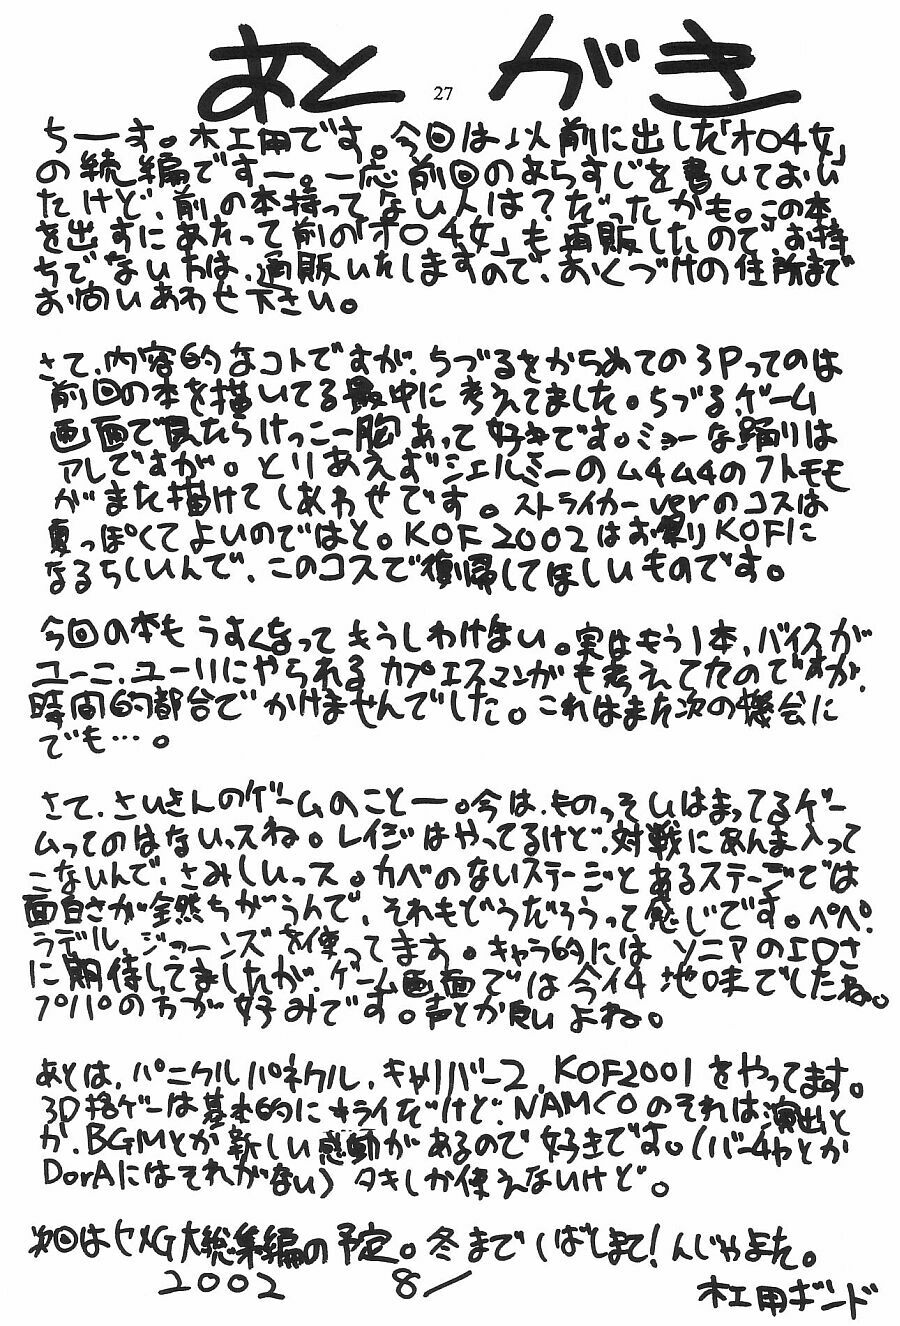 あとがき
27
ちーす。木工用です。今回は以前に出した「オロ4女」
の続編ですー。一応前回のあらすじを書いておい
たけど、前の本持ってない人は？だったかも。この本
を出すにあたって前の「オロ4女」も再販したので、お持
ちでない方は、通販いたしますので、おくづけの住所まで
お問いあわせ下さい。
さて、内容的なコトですが、ちづるをからめての3Pってのは
前回の本を描いてる最中に考えてました。ちづる、ゲーム
画面で見たらけっこー胸あって好きです。ミョーな踊りは
アレですが。とりあえずシェルミーのムチムチのフトモモ
がまた描けてしあわせです。ストライカーverのコスは
夏っぽくてよいのではと。KOF2002はお祭りKOFに
なるらしいんで、このコスで復帰してほしいものです。
今回の本もうすくなってもうしわけない。実はもう1本、バイスが
ユーニ、ユーリにやられるカプエスマンガも考えてたのですが、
時間的都合でかけませんでした。これはまた次の機会に
でも…。
さて、さいきんのゲームのことー。今は、ものっそいはまってるゲー
ムってのはないっスね。レイジはやってるけど、対戦にあんま入って
こないんで、さみしいっス。カベのないステージとあるステージでは
面白さが全然ちがうんで、それもどうだろうって感じです。ペペ、
ラデル、ジョーンズを使ってます。キャラ的にはソニアのエロさ
に期待してましたが、ゲーム画面では今イチ地味でしたね。
プルプルの方が好みです。声とか良いよね。
あとは、パニクルパネクル、キャリバー2、KOF2001をやってます。
3D格ゲーは基本的にキライだけど、NAMCOのそれは演出と
か、BGMとか新しい感動があるので好きです。（バーチャとか
DorAにはそれがない）タキしか使えないけど。
次回はヒメG大総集編の予定。冬までしばしまて！んじゃまた。
2002 8/
木工用ボンド